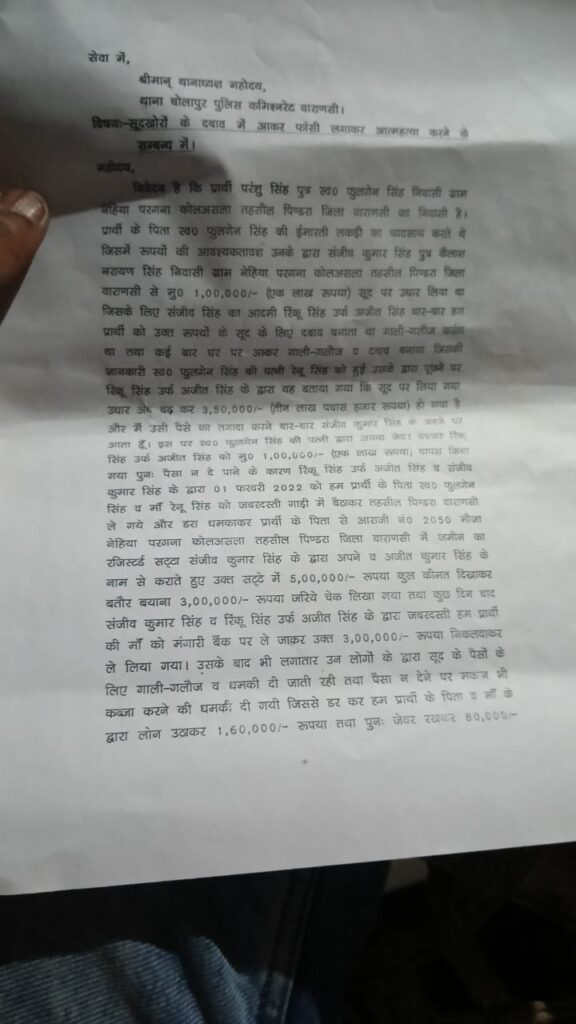 सेवा में,
श्रीमान् थानाध्यक्ष महोदय,
थाना चोलापुर पुलिस कमिश्नरेट वाराणसी।
विषयः-सूदखोरों के दबाव में आकर फांसी लगाकर आत्महत्या करने के
सम्बन्ध में।
महोदय,
निवेदन है कि प्रार्थी परंशु सिंह पुत्र स्व० फुलगेन सिंह निवासी ग्राम
नेहिया परगना कोलअसला तहसील पिण्डरा जिला वाराणसी का निवासी है।
प्रार्थी के पिता स्व० फुलगेन सिंह की ईमारती लकड़ी का व्यवसाय करते थे
जिसमें रूपयों की आवश्यकतावश उनके द्वारा संजीव कुमार सिंह पुत्र कैलाश
नरायण सिंह निवासी ग्राम नेहिया परगना कोलअसला तहसील पिण्डरा जिला
वाराणसी से मु० 1,00,000/- (एक लाख रूपया) सूद पर उधार लिया था
जिसके लिए संजीव सिंह का आदमी रिंकू सिंह उर्फ अजीत सिंह बार-बार हम
प्रार्थी को उक्त रूपयों के सूद के लिए दबाव बनाता था गाली-गलौज करता
था तथा कई बार घर पर आकर गाली-गलौज व दबाव बनाया जिसकी
जानकारी स्व० फुलगेन सिंह की पत्नी रेनू सिंह को हुई उसके द्वारा पूछने पर
रिंकू सिंह उर्फ अजीत सिंह के द्वारा यह बताया गया कि सूद पर लिया गया
उधार अब बढ़ कर 3,50,000/- (तीन लाख पचास हजार रूपया) हो गया है
और मैं उसी पैसे का तगादा करने बार-बार संजीव कुमार सिंह के कहने पर
आता हूँ। इस पर स्व० फुलगेन सिंह की पत्नी द्वारा अपना जेवर बेचकर रिंकू
सिंह उर्फ अजीत सिंह को मु० 1,00,000/- (एक लाख रूपया) वापस किया
गया पुनः पैसा न दे पाने के कारण रिंकू सिंह उर्फ अजीत सिंह व संजीव
कुमार सिंह के द्वारा 01 फरवरी 2022 को हम प्रार्थी के पिता स्व० फुलगेन
सिंह व माँ रेनू सिंह को जबरदस्ती गाड़ी में बैठाकर तहसील पिण्डरा वाराणसी
ले गये और डरा धमकाकर प्रार्थी के पिता से आराजी नं० 2050 मौजा
नेहिया परगना कोलअसला तहसील पिण्डरा जिला वाराणसी में जमीन का
रजिस्टर्ड सट्टा संजीव कुमार सिंह के द्वारा अपने व अजीत कुमार सिंह के
नाम से कराते हुए उक्त सट्टे में 5,00,000/- रूपया कुल कीमत दिखाकर
बतौर बयाना 3,00,000/- रूपया जरिये चेक लिखा गया तथा कुछ दिन बाद
संजीव कुमार सिंह व रिंकू सिंह उर्फ अजीत सिंह के द्वारा जबरदस्ती हम प्रार्थी
की माँ को मंगारी बैंक पर ले जाकर उक्त 3,00,000/- रूपया निकलवाकर
ले लिया गया। उसके बाद भी लगातार उन लोगों के द्वारा सूद के पैसों के
लिए गाली-गलौज व धमकी दी जाती रही तथा पैसा न देने पर मकान भी
कब्जा करने की धमकी दी गयी जिससे डर कर हम प्रार्थी के पिता व माँ के
द्वारा लोन उठाकर 1,60,000/- रूपया तथा पुनः जेवर रखकर 80,000/-